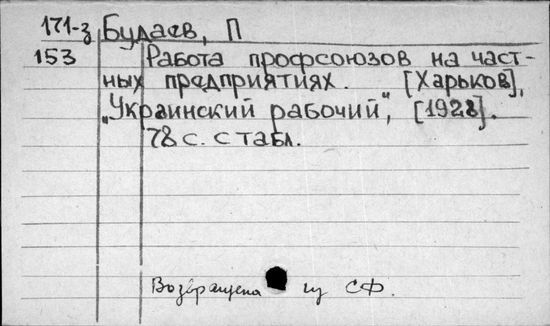 171-з Будаев, П
153 Работа профсоюзов на част-
ных предприятиях. [Харьков],
„Украинский рабочий", [1928].
78 с. с табл.
Возвращена из СФ.